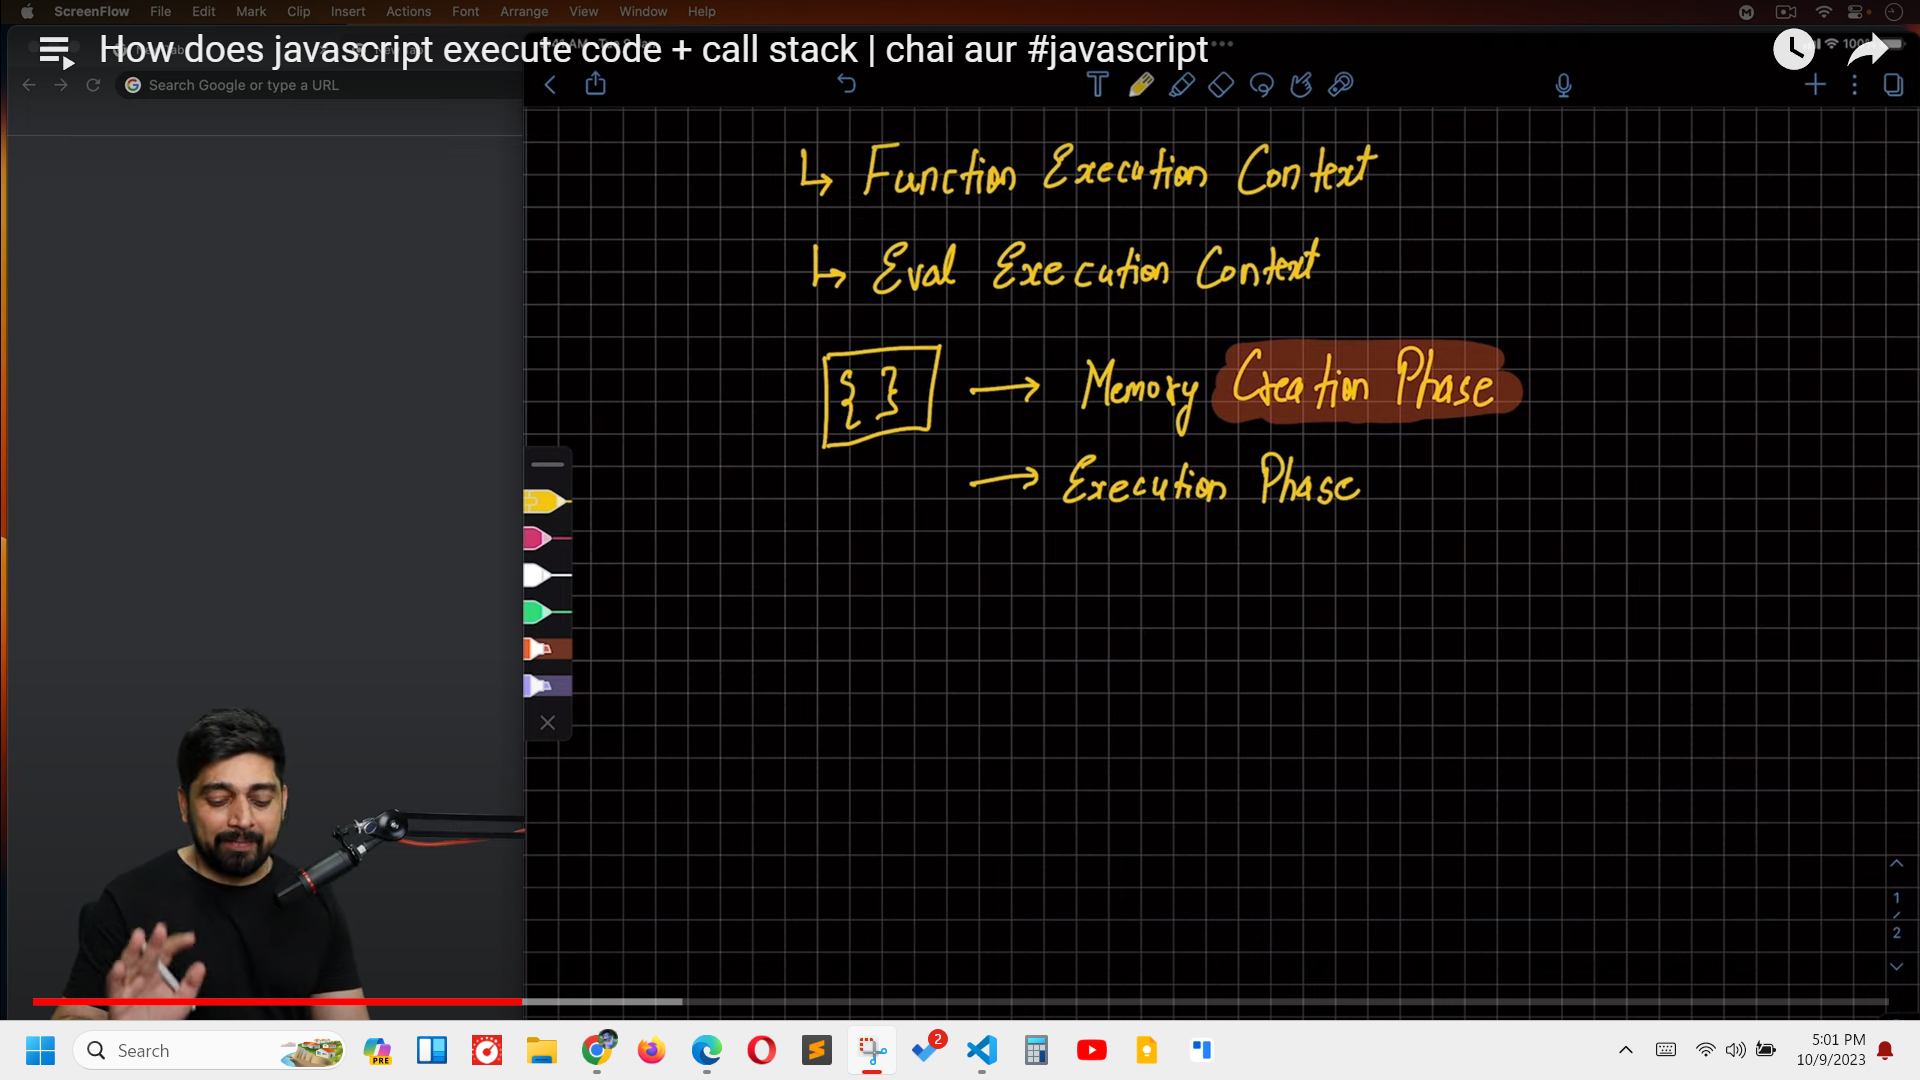 ScreenFlow File Edit Mark Clip Insert Actions Font Arrange View Window Help
How does javascript execute code + call stack | chai aur #javascript
100%
Search Google or type a URL
↳ Function Execution Context
↳ Eval Execution Context
{ } → Memory Creation Phase
→ Execution Phase
1
/
2
Search
PRE
2
5:01 PM
10/9/2023